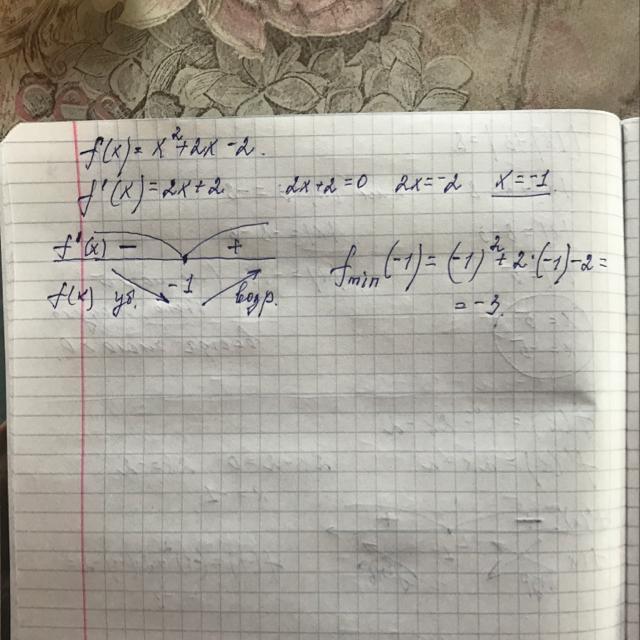 f(x)=x²+2x-2.
f'(x)=2x+2 2x+2=0 2x=-2 x=-1
f'(x) - +
-1
f(x) уб. возр.
f min (-1) = (-1)²+2·(-1)-2=
= -3.